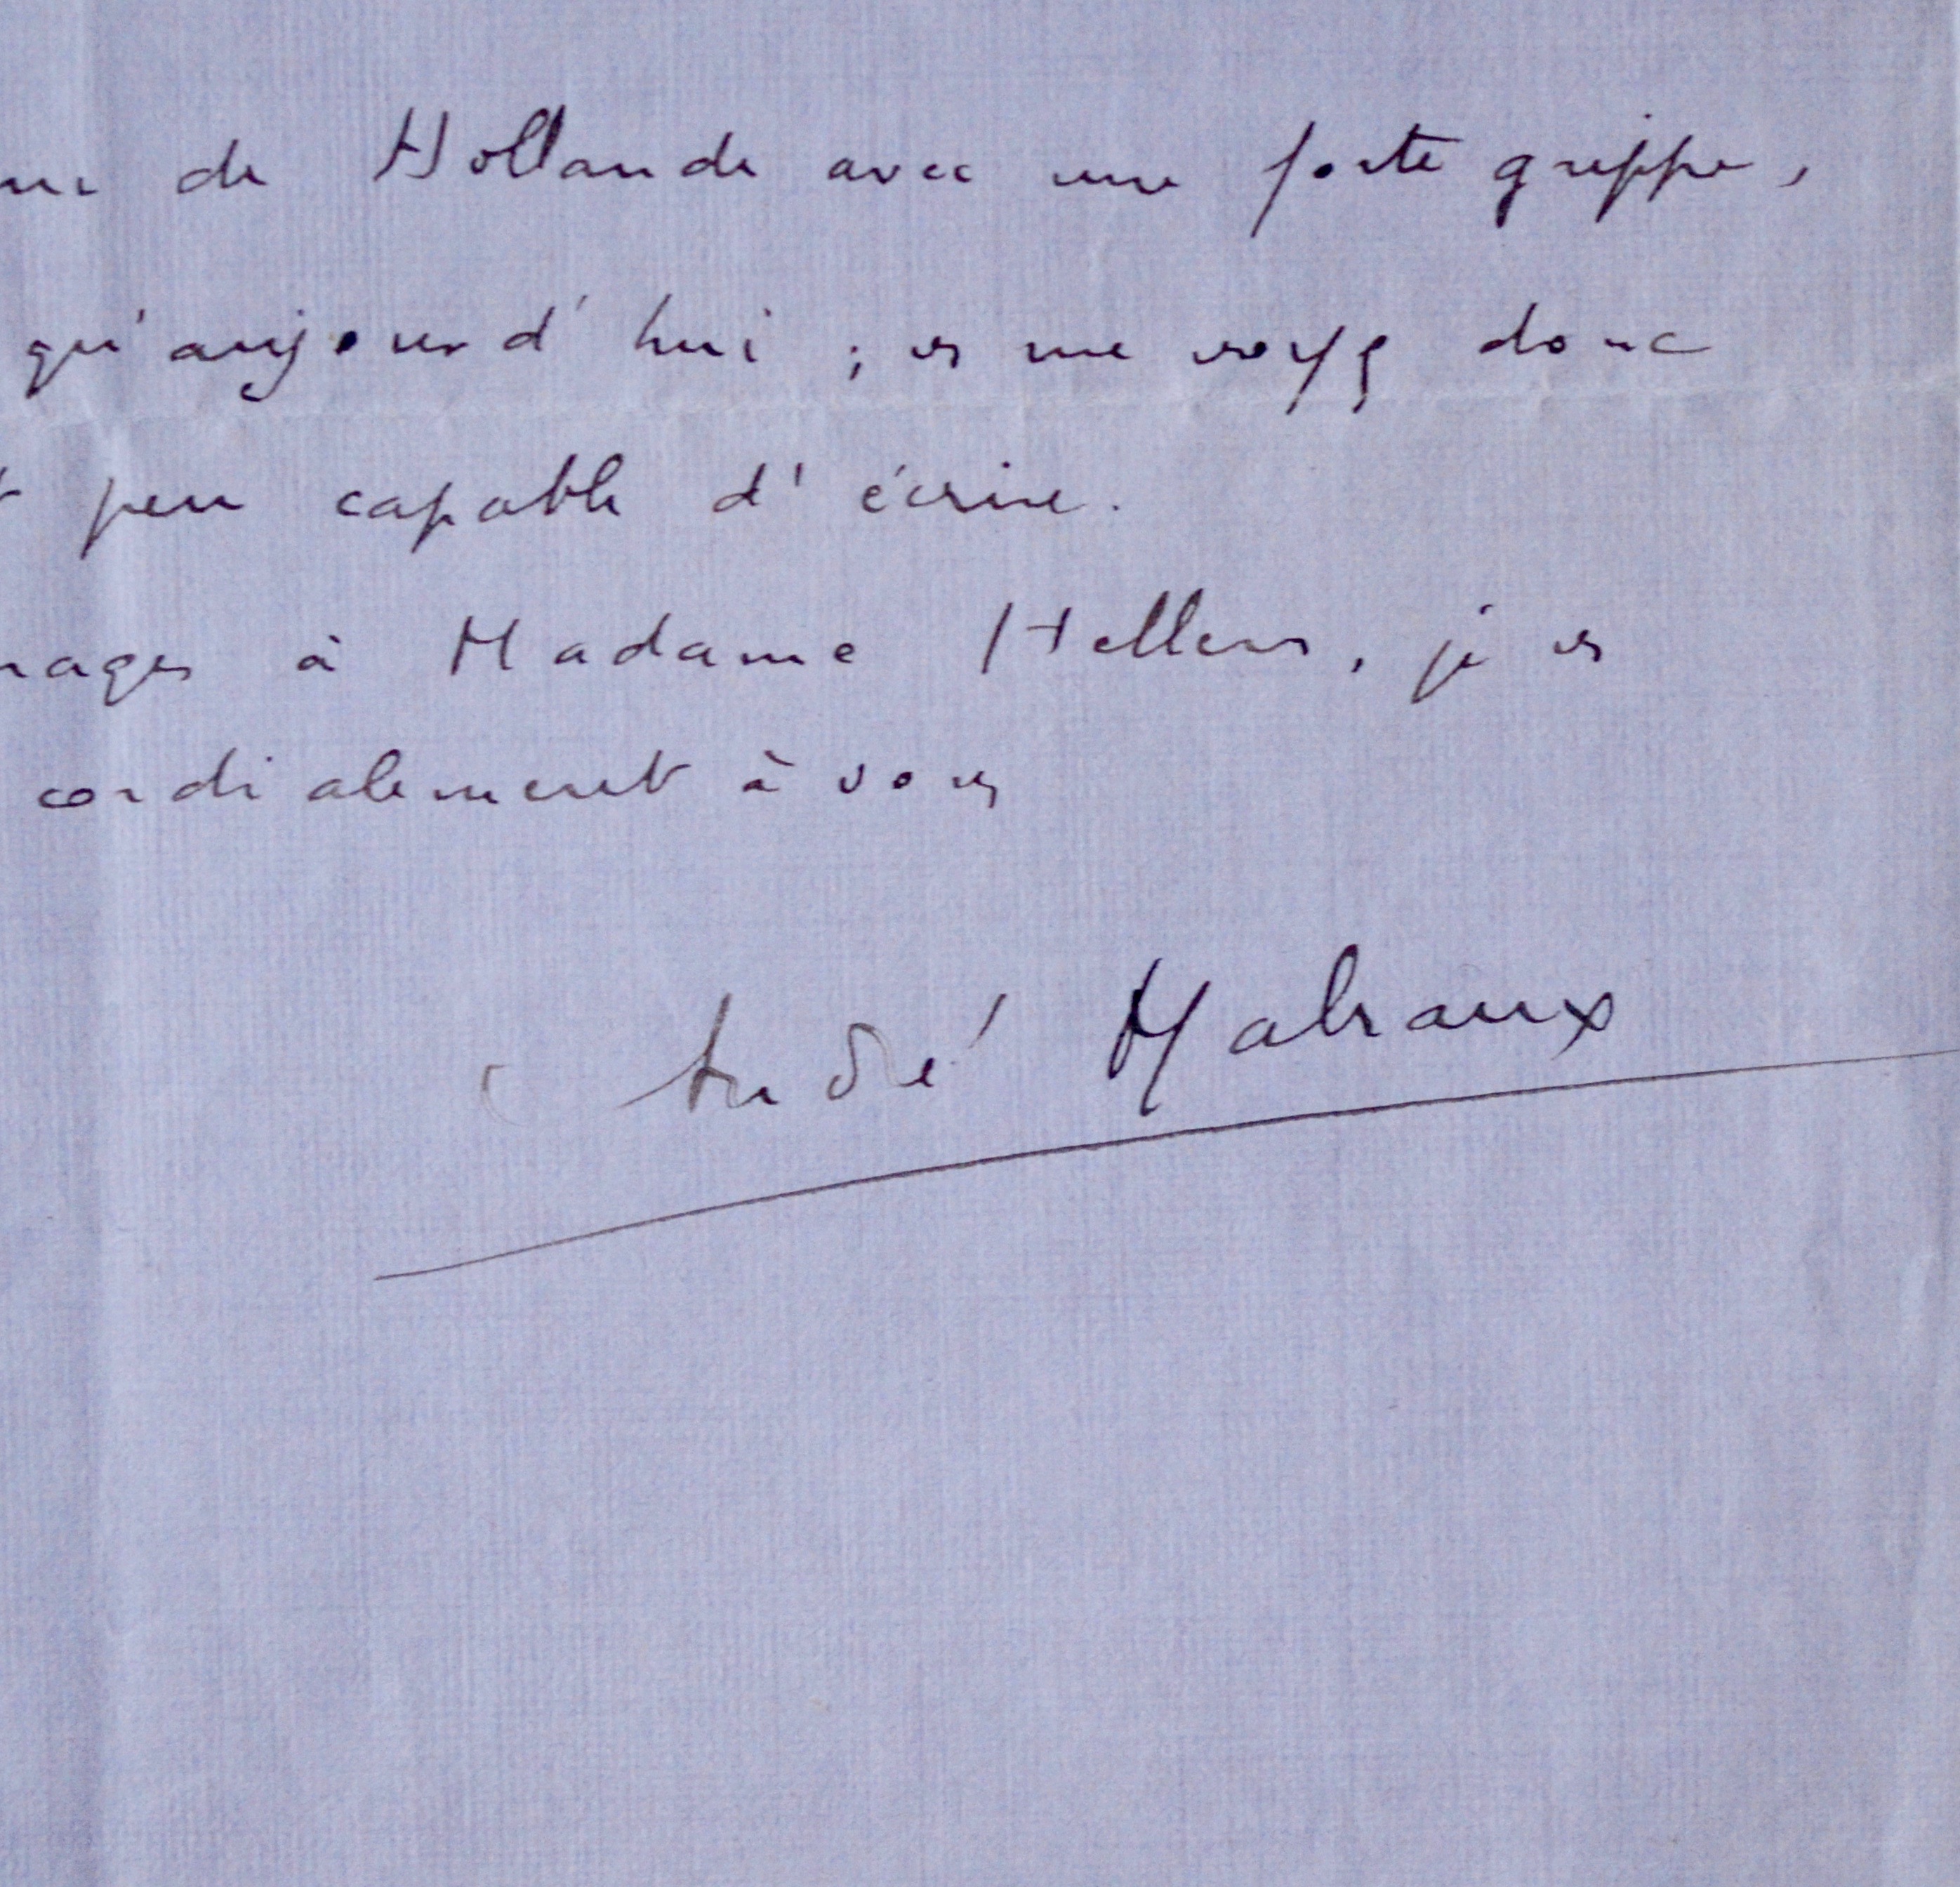 de Hollande avec une forte grippe,
qu'aujourd'hui ; vs me voyez donc
peu capable d'écrire.
à Madame Hellens, je vs
cordialement à vous
André Malraux